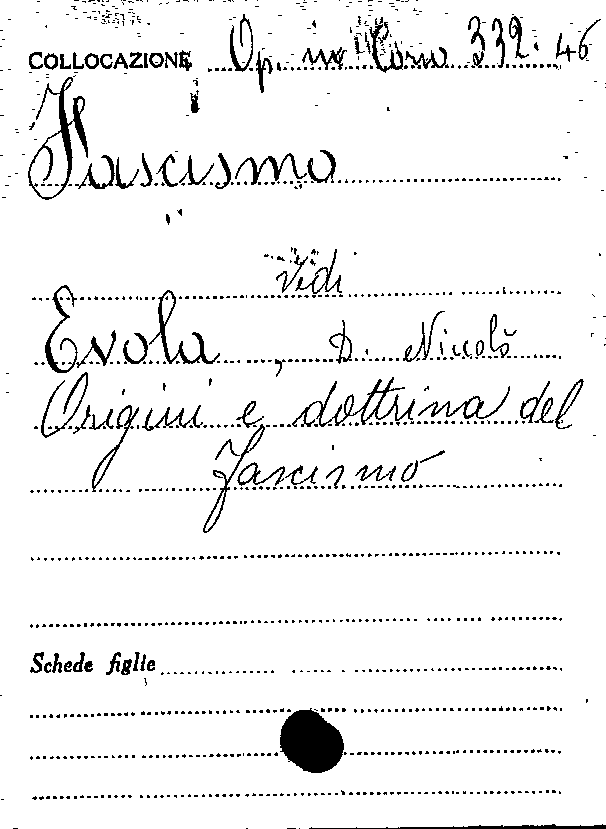 COLLOCAZIONE Op. in Corso 332. 46
Fascismo
Vedi
Evola, D. Niccolò
Origini e dottrina del
fascismo
Schede figlie